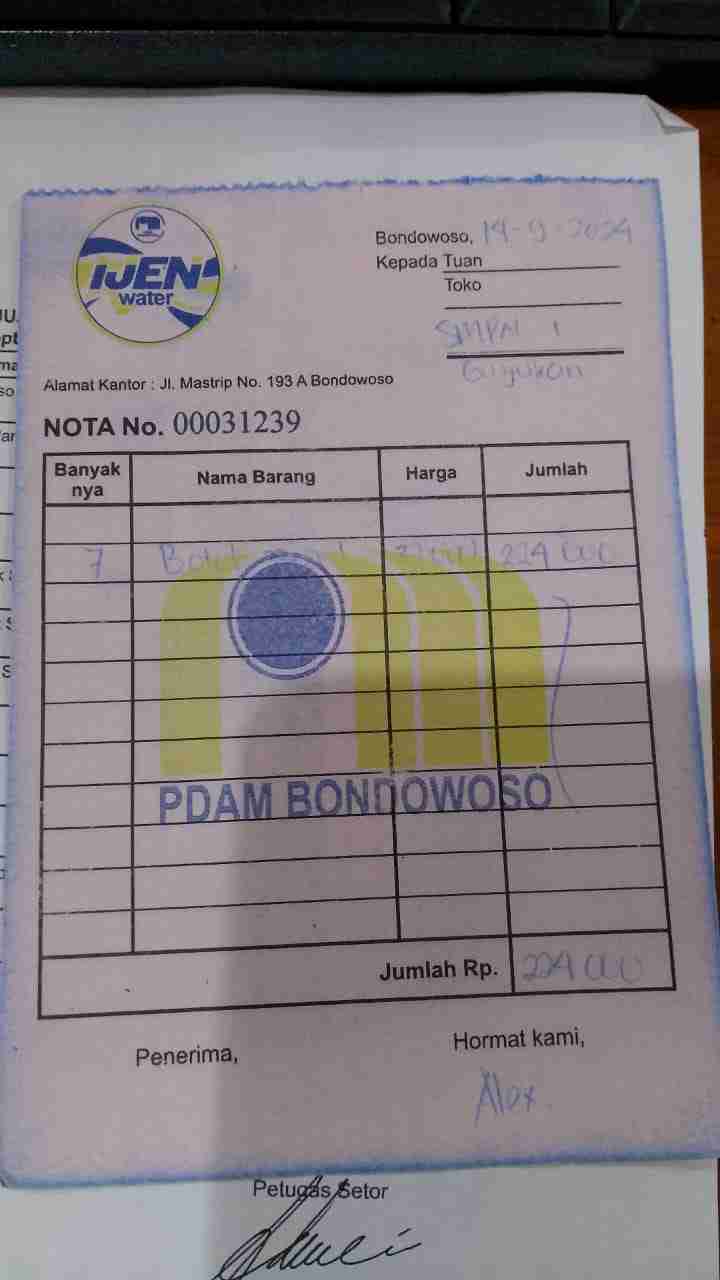 IJEN
water
Bondowoso, 14-9-2024
Kepada Tuan
Toko
SMPN 1
Alamat Kantor : Jl. Mastrip No. 193 A Bondowoso
NOTA No. 00031239
Banyak nya Nama Barang Harga Jumlah
7 224 000
PDAM BONDOWOSO
Jumlah Rp. 224 000
Penerima,
Hormat kami,
Alex
Petugas Setor